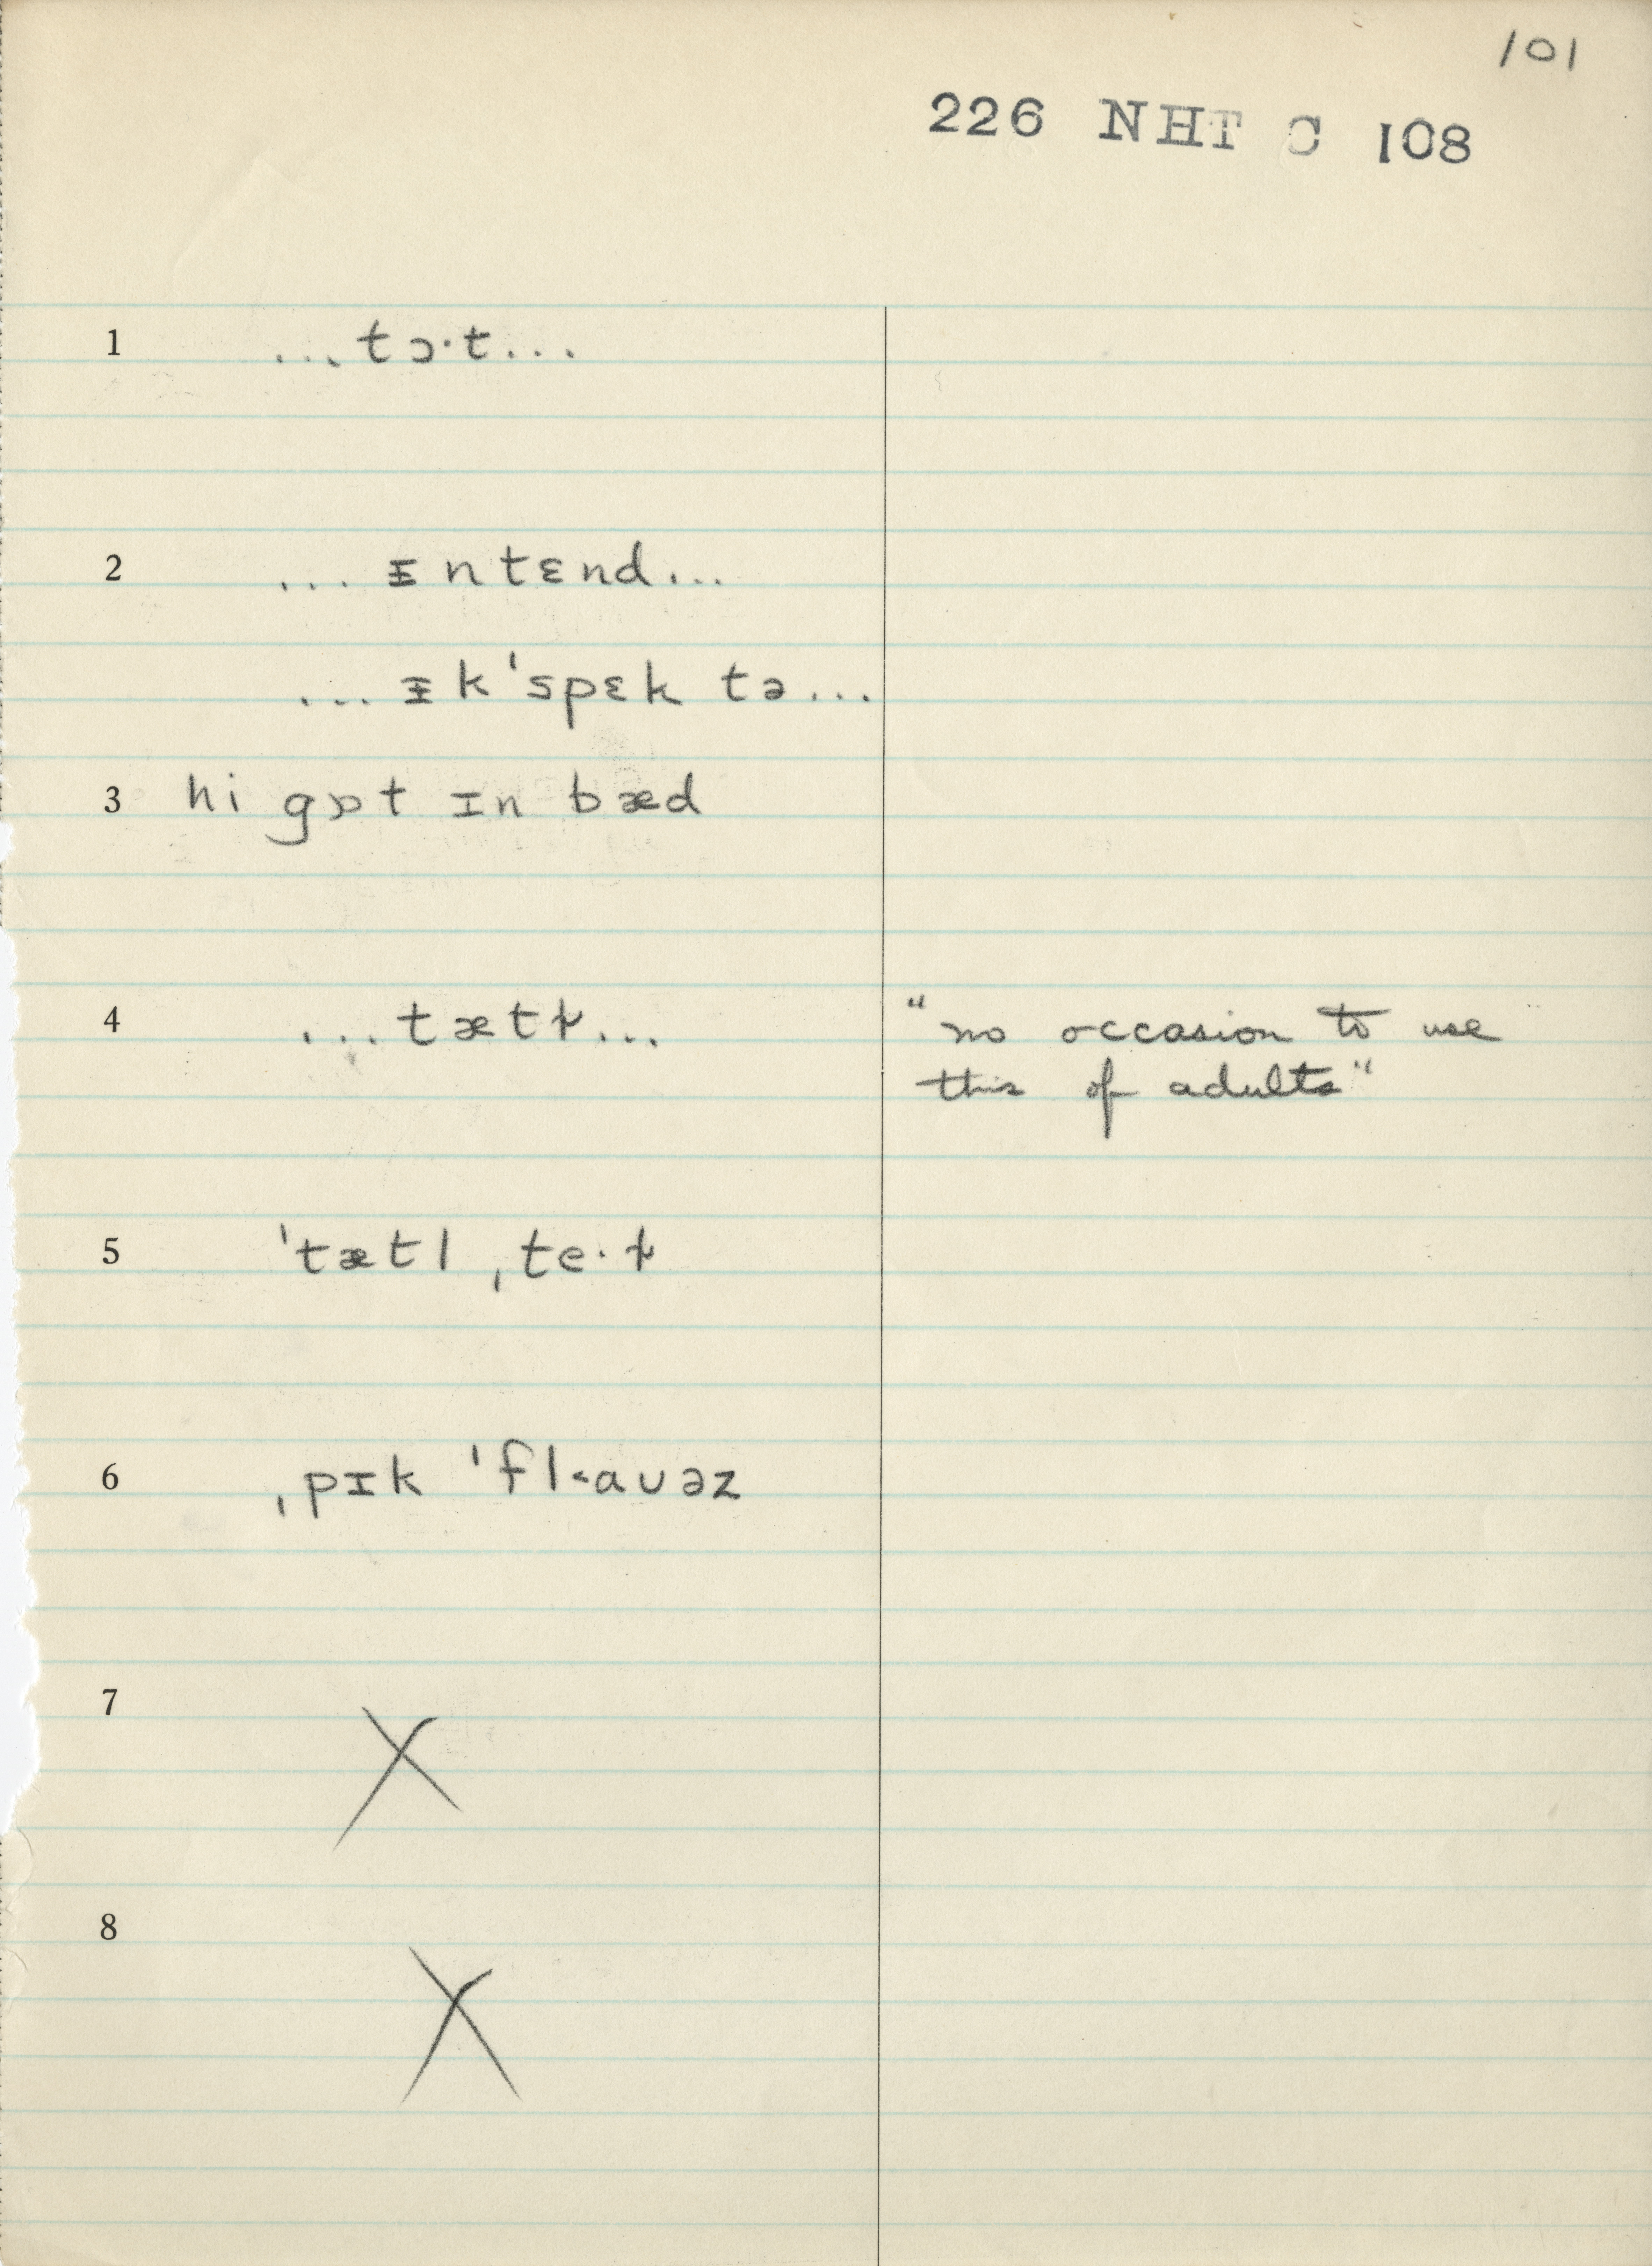 101
226 NHT C 108
1 ...tɔ·t...
2 ...ᵻntɛnd...
...ᵻk'spɛk tə...
3 hi gɒt ɪn bæd
4 ...tætɫ... "no occasion to use
this of adults"
5 'tætl ˌte·ɫ
6 ˌpɪk 'fl<aʊəz
7 X
8 X